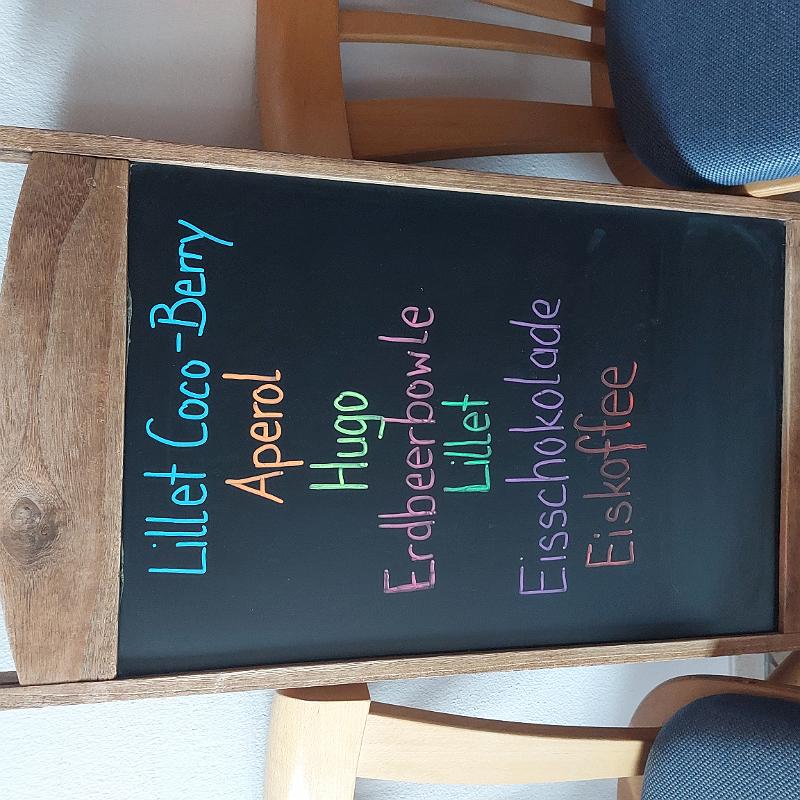 Lillet Coco-Berry
Aperol
Hugo
Erdbeerbowle
Lillet
Eisschokolade
Eiskoffee